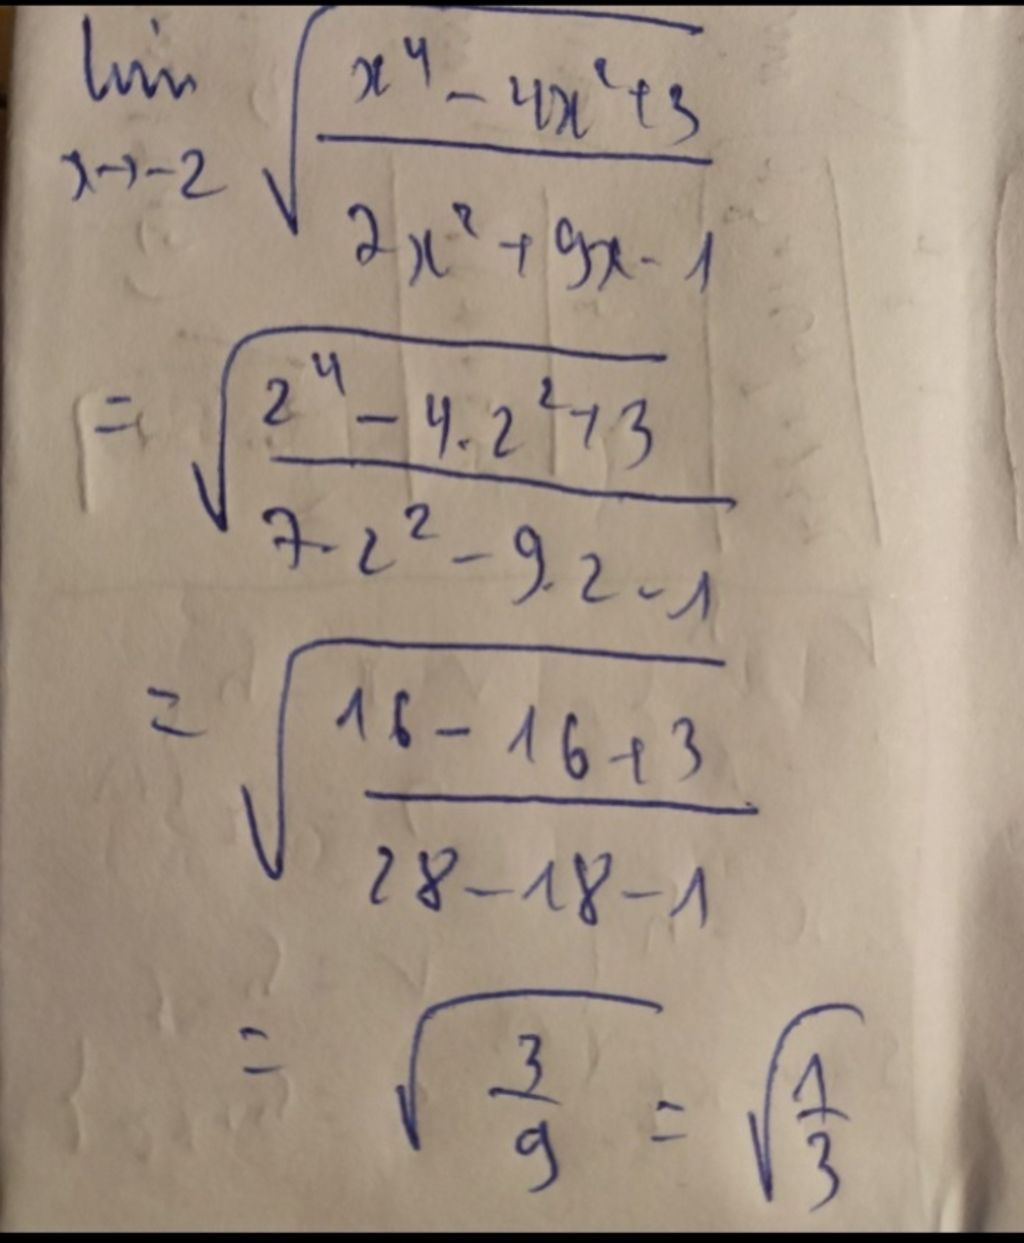 lim x→-2 √((x⁴ - 4x² + 3)/(7x² + 9x - 1))
= √((2⁴ - 4.2² + 3)/(7.2² - 9.2 - 1))
= √((16 - 16 + 3)/(28 - 18 - 1))
= √(3/9) = √(1/3)